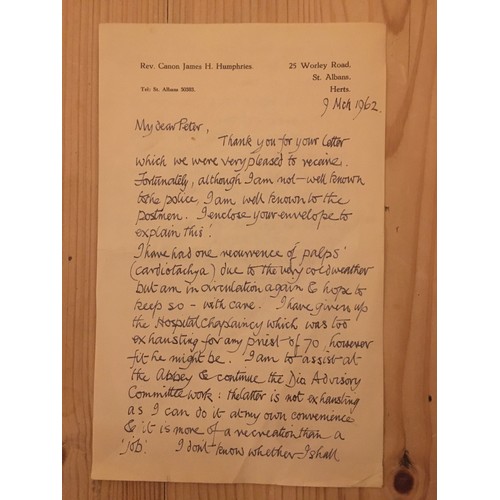 Rev. Canon James H. Humphries.
25 Worley Road,
St. Albans,
Herts.
Tel: St. Albans
9 Mch 1962.
My dear Peter,
Thank you for your letter
which we were very pleased to receive.
Fortunately, although I am not well known
to the police, I am well known to the
postmen. I enclose your envelope to
explain this!
I have had one recurrence of 'palps'
(cardiotachya) due to the very cold weather
but am in circulation again & hope to
keep so - with care. I have given up
the Hospital Chaplaincy which was too
exhausting for any priest of 70, however
fit he might be. I am to assist at
the Abbey & continue the Dio Advisory
Committee work: the latter is not exhausting
as I can do it at my own convenience
& it is more of a recreation than a
'job'. I don't know whether I shall